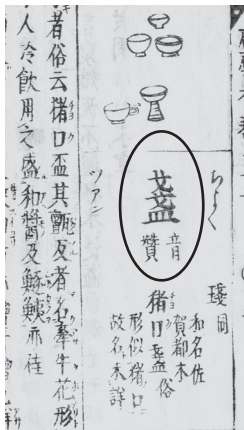 ちよく
琖同
和名佐
賀都木
猪口盞俗
形似猪口
故名未詳
盞
音
贊
ツアン
者俗云猪口盃其甑反者名牽牛花形
人冷飲用之盛和醬及鱁鮧亦佳